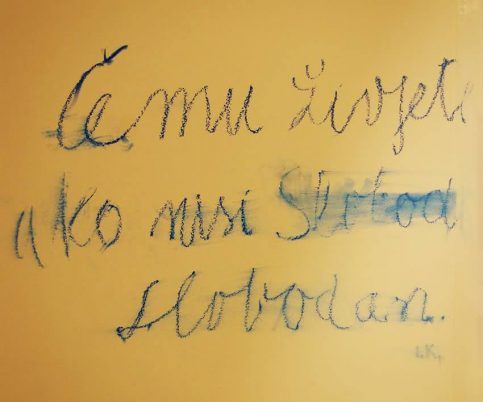 Čemu živjeti
"Ko nisi Slobod
slobodan.
I.K.